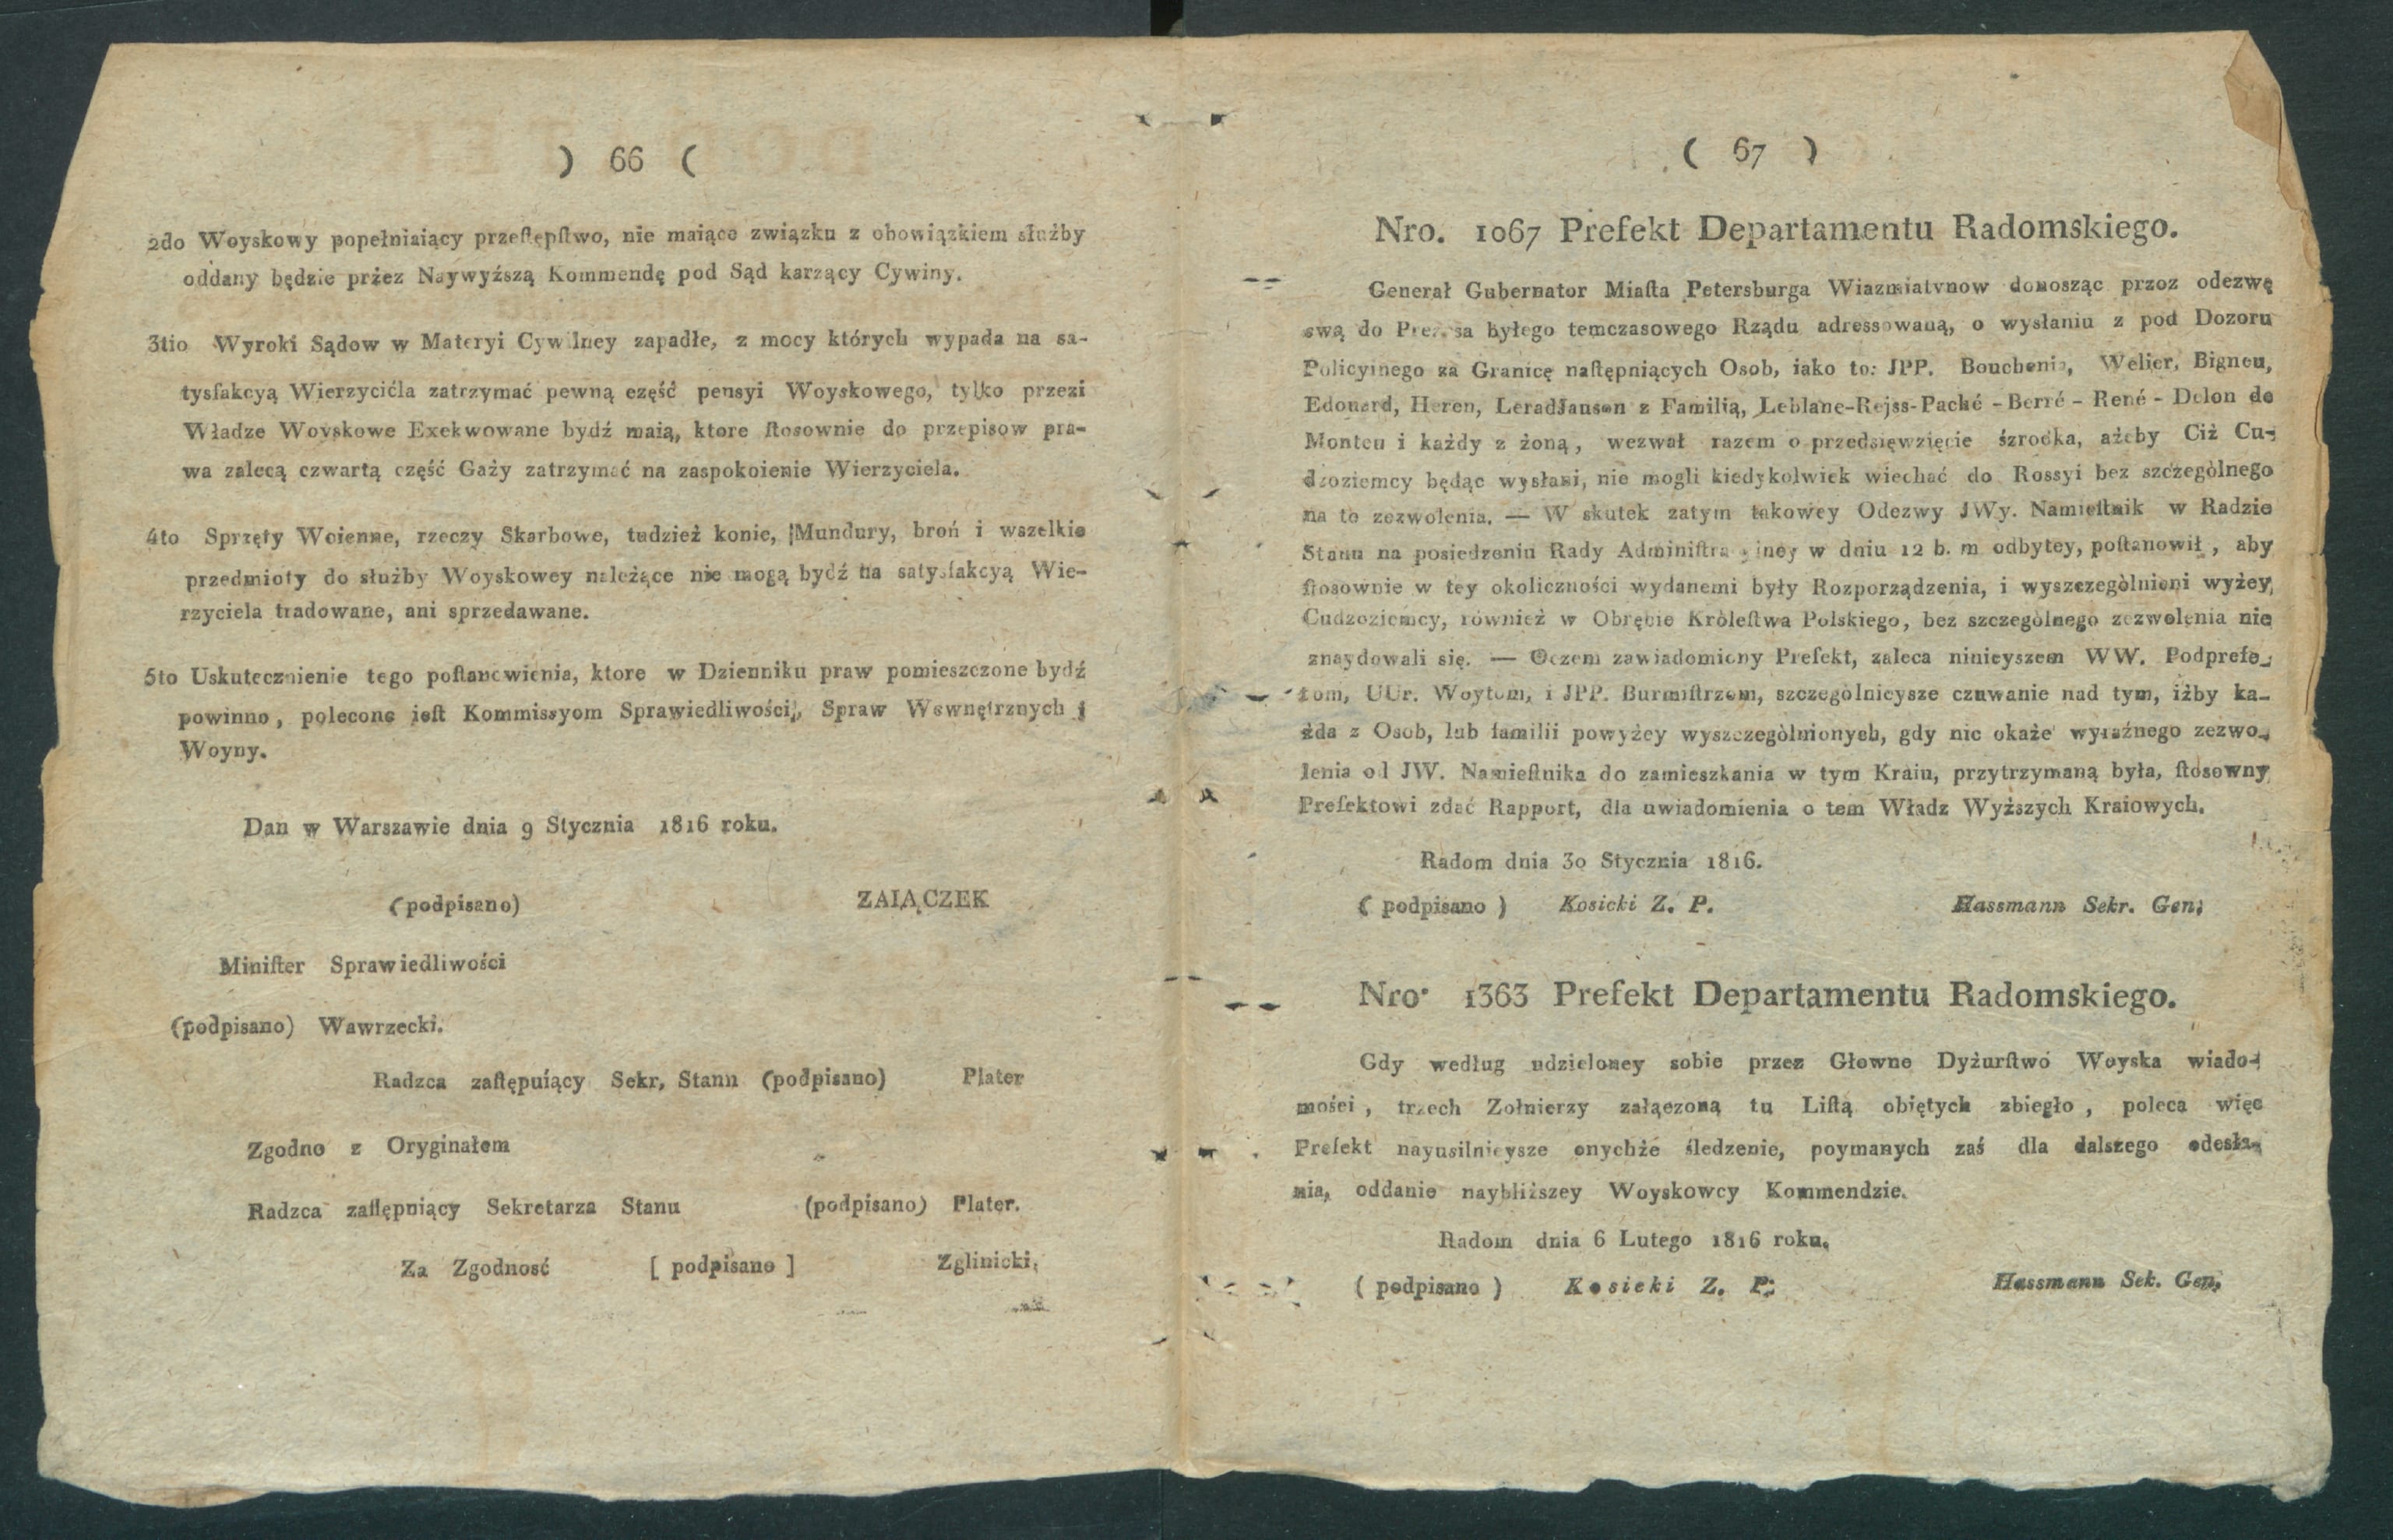 ) 66 (
2do Woyskowy popełniaiący przestępstwo, nie maiące związku z obowiązkiem służby
oddany będzie przez Naywyższą Kommendę pod Sąd karzący Cywiny.
3tio Wyroki Sądow w Materyi Cywilney zapadłe, z mocy których wypada na sa-
tysfakcyą Wierzycićla zatrzymać pewną część pensyi Woyskowego, tylko przezi
Władze Woyskowe Exekwowane bydź maią, ktore stosownie do przepisow pra-
wa zalecą czwartą część Gaży zatrzymać na zaspokoienie Wierzyciela.
4to Sprzęty Woienne, rzeczy Skarbowe, tudzież konie, Mundury, broń i wszelkie
przedmioty do służby Woyskowey należące nie mogą bydź na satysfakcyą Wie-
rzyciela tradowane, ani sprzedawane.
5to Uskutecznienie tego postanowienia, ktore w Dzienniku praw pomieszczone bydź
powinno, polecone iest Kommissyom Sprawiedliwości, Spraw Wewnętrznych i
Woyny.
Dan w Warszawie dnia 9 Stycznia 1816 roku.
(podpisano) ZAIĄCZEK
Minister Sprawiedliwości
(podpisano) Wawrzecki.
Radzca zastępuiący Sekr, Stanu (podpisano) Plater
Zgodno z Oryginałem
Radzca zastępuiący Sekretarza Stanu (podpisano) Plater.
Za Zgodność [ podpisano ] Zglinicki,
( 67 )
Nro. 1067 Prefekt Departamentu Radomskiego.
Generał Gubernator Miasta Petersburga Wiazmiatynow donosząc przez odezwę
swą do Prezesa byłego temczasowego Rządu adressowaną, o wysłaniu z pod Dozoru
Policyinego za Granicę następuiących Osob, iako to: JPP. Welier, Bigneu,
Edouard, Heren, LeradJanson z Familią, Leblane-Rejss-Paché - Berré - René - Delon de
Monteu i każdy z żoną, wezwał razem o przedsięwzięcie śzrodka, ażeby Ciż Cu-
dzoziemcy będąc wysłani, nie mogli kiedykolwiek wiechać do Rossyi bez szczegòlnego
na to zezwolenia. — W skutek zatym takowey Odezwy JWy. Namiestnik w Radzie
Stanu na posiedzeniu Rady Administracyiney w dniu 12 b. m odbytey, postanowił, aby
stosownie w tey okoliczności wydanemi były Rozporządzenia, i wyszczegòlnieni wyżey
Cudzoziemcy, również w Obrębie Kròlestwa Polskiego, bez szczegòlnego zezwolenia nie
znaydowali się. — Oczem zawiadomiony Prefekt, zaleca ninieyszem WW. Podprefe-
tom, UUr. Woytom, i JPP. Burmistrzom, szczegòlnieysze czuwanie nad tym, iżby ka-
żda z Osob, lub familii powyżey wyszczegòlnionych, gdy nie okaże wyraźnego zezwo-
lenia od JW. Namiestnika do zamieszkania w tym Kraiu, przytrzymaną była, stosowny
Prefektowi zdać Rapport, dla uwiadomienia o tem Władz Wyższych Kraiowych.
Radom dnia 30 Stycznia 1816.
( podpisano ) Kosicki Z. P. Hassmann Sekr. Gen;
Nro. 1363 Prefekt Departamentu Radomskiego.
Gdy według udzieloney sobie przez Głowne Dyżurstwo Woyska wiado-
mości, trzech Zołnierzy załączoną tu Listą obiętych zbiegło, poleca więc
Prefekt nayusilnieysze onychże śledzenie, poymanych zaś dla dalszego odesła-
nia, oddanie naybliższey Woyskowey Kommendzie.
Radom dnia 6 Lutego 1816 roku.
( podpisano ) Kosicki Z. P. Hassmann Sek. Gen,